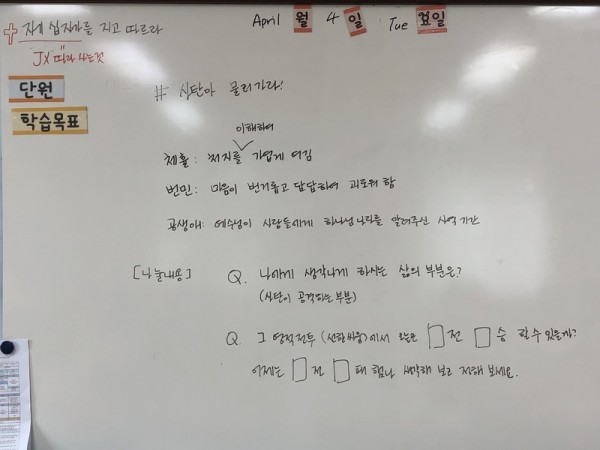 자기 십자가를 지고 따르라
April 월 4 일 Tue 요일
JX 따라 사는것
단원
학습목표
# 사탄아 물러가라!
이해하여
체휼: 처지를 가엽게 여김
번민: 마음이 번거롭고 답답하여 괴로워 함
공생애: 예수님이 사람들에게 하나님 나라를 알려주신 사역 기간
[나눌내용] Q. 나에게 생각나게 하시는 삶의 부분은?
(사탄이 공격하는 부분)
Q. 그 영적전투(선한싸움)에서 오늘은 □전 □승 할 수 있을까?
어제는 □전 □패 했나 생각해 보고 적해 보세요.